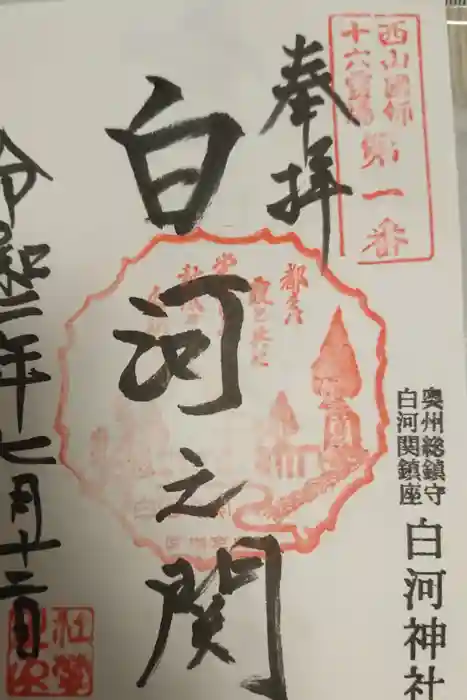 西山國師
十六霊場
第一番
奉拝
白河之関
都をば
令和二年七月十二日
奥州総鎮守
白河関鎮座
白河神社